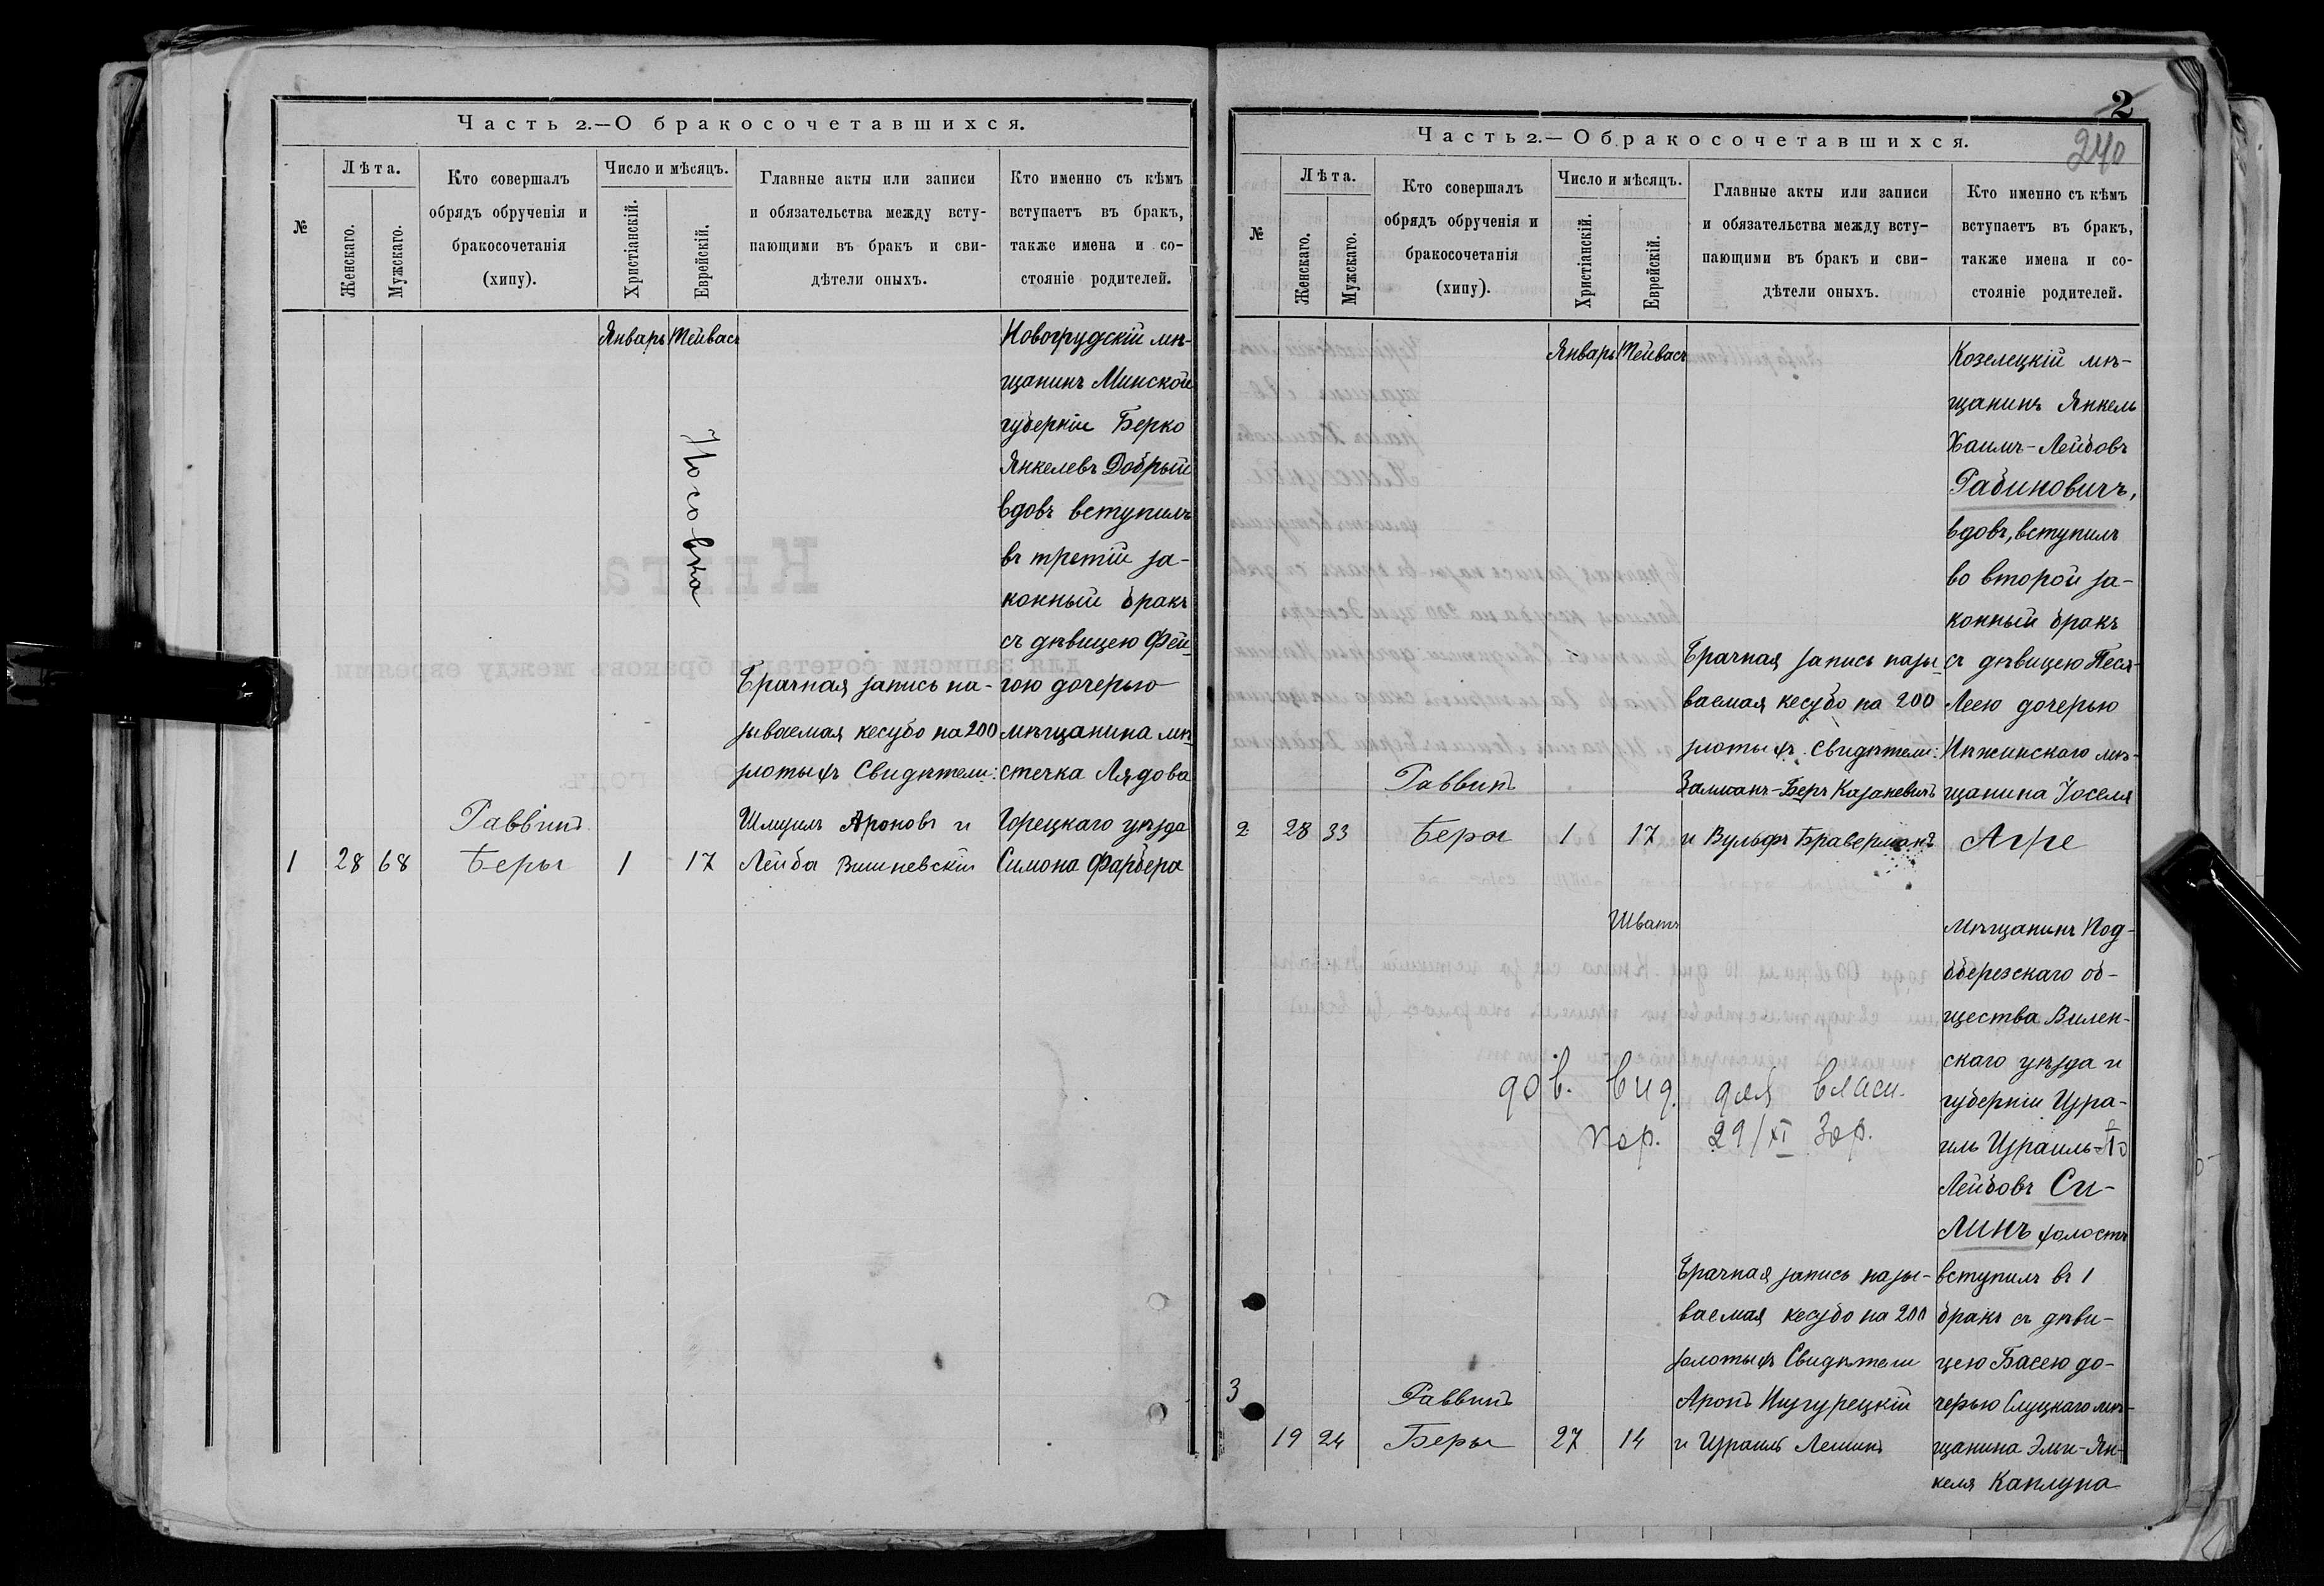 Часть 2.—О бракосочетавшихся.
№
Лѣта.
Женскаго.
Мужскаго.
Кто совершалъ
обрядъ обрученія и
бракосочетанія
(хипу).
Число и мѣсяцъ.
Христіанскій.
Еврейскій.
Главные акты или записи
и обязательства между всту-
пающими въ бракъ и сви-
дѣтели оныхъ.
Кто именно съ кѣмъ
вступаетъ въ бракъ,
также имена и со-
стояніе родителей.
1
28
68
Раввинъ
Беры
Январь
1
Тейвасъ
17
Носовка
Брачная запись на-
зываемая кесубо на 200
злотыхъ Свидѣтели:
Шмуилъ Ароновъ и
Лейба Вишневскій
Новогрудскій мѣ-
щанинъ Минской
губерніи Берко
Янкелевъ Добрый
вдовъ вступилъ
въ третій за-
конный бракъ
съ дѣвицею Фей-
гою дочерью
мѣщанина мѣ-
стечка Лядова
Горецкаго уѣзда
Симона Фарбера
2
240
Часть 2.—О бракосочетавшихся.
№
Лѣта.
Женскаго.
Мужскаго.
Кто совершалъ
обрядъ обрученія и
бракосочетанія
(хипу).
Число и мѣсяцъ.
Христіанскій.
Еврейскій.
Главные акты или записи
и обязательства между всту-
пающими въ бракъ и сви-
дѣтели оныхъ.
Кто именно съ кѣмъ
вступаетъ въ бракъ,
также имена и со-
стояніе родителей.
2
28
33
Раввинъ
Беры
Январь
1
Тейвасъ
17
Брачная запись назы-
ваемая кесубо на 200
злотыхъ. Свидѣтели:
Залманъ-Беръ Казаневичъ
и Вульфъ Браверманъ
Козелецкій мѣ-
щанинъ Янкель
Хаимъ-Лейбовъ
Рабиновичъ,
вдовъ, вступилъ
во второй за-
конный бракъ
съ дѣвицею Песя-
Леею дочерью
Нѣжинскаго мѣ-
щанина Іоселя
3
19
24
Раввинъ
Беры
27
Шватъ
14
дов. вид. для
29/XI
Брачная запись назы-
ваемая кесубо на 200
золотыхъ Свидѣтели
Аронъ
и Израиль Лешинъ
Мѣщанинъ Под-
березскаго об-
щества Вилен-
скаго уѣзда и
губерніи Изра-
иль Израиль-
Лейбовъ Си-
линъ холостъ
вступилъ въ 1
бракъ съ дѣви-
цею Басею до-
черью Слуцкаго мѣ-
щанина Эльи-Ян-
келя Каплуна